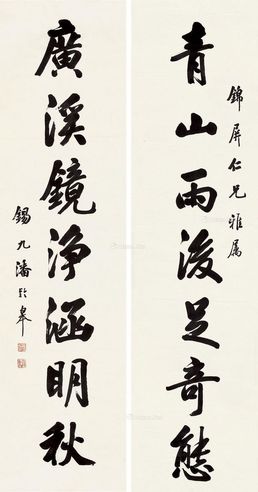 錦屏仁兄雅屬
青山雨後足奇態
廣溪鏡淨涵明秋
錫九潘齡皋